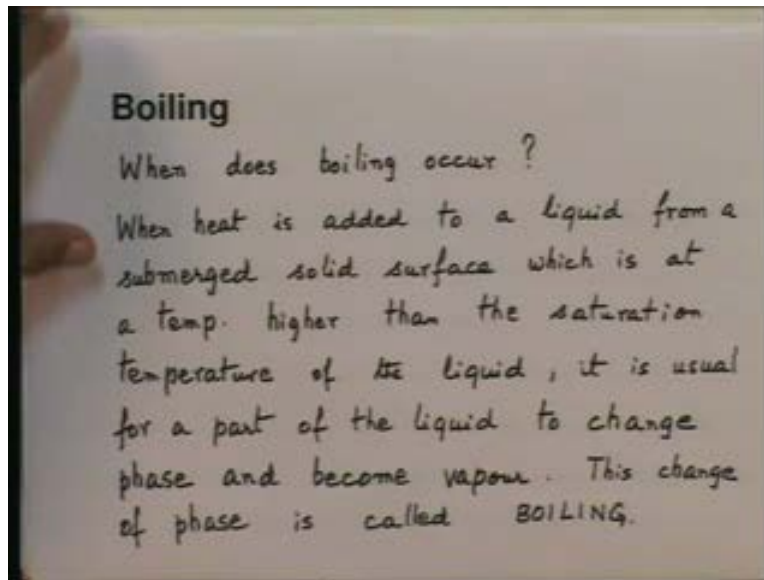 Boiling
When does boiling occur ?
When heat is added to a liquid from a
submerged solid surface which is at
a temp. higher than the saturation
temperature of the liquid, it is usual
for a part of the liquid to change
phase and become vapour. This change
of phase is called BOILING.